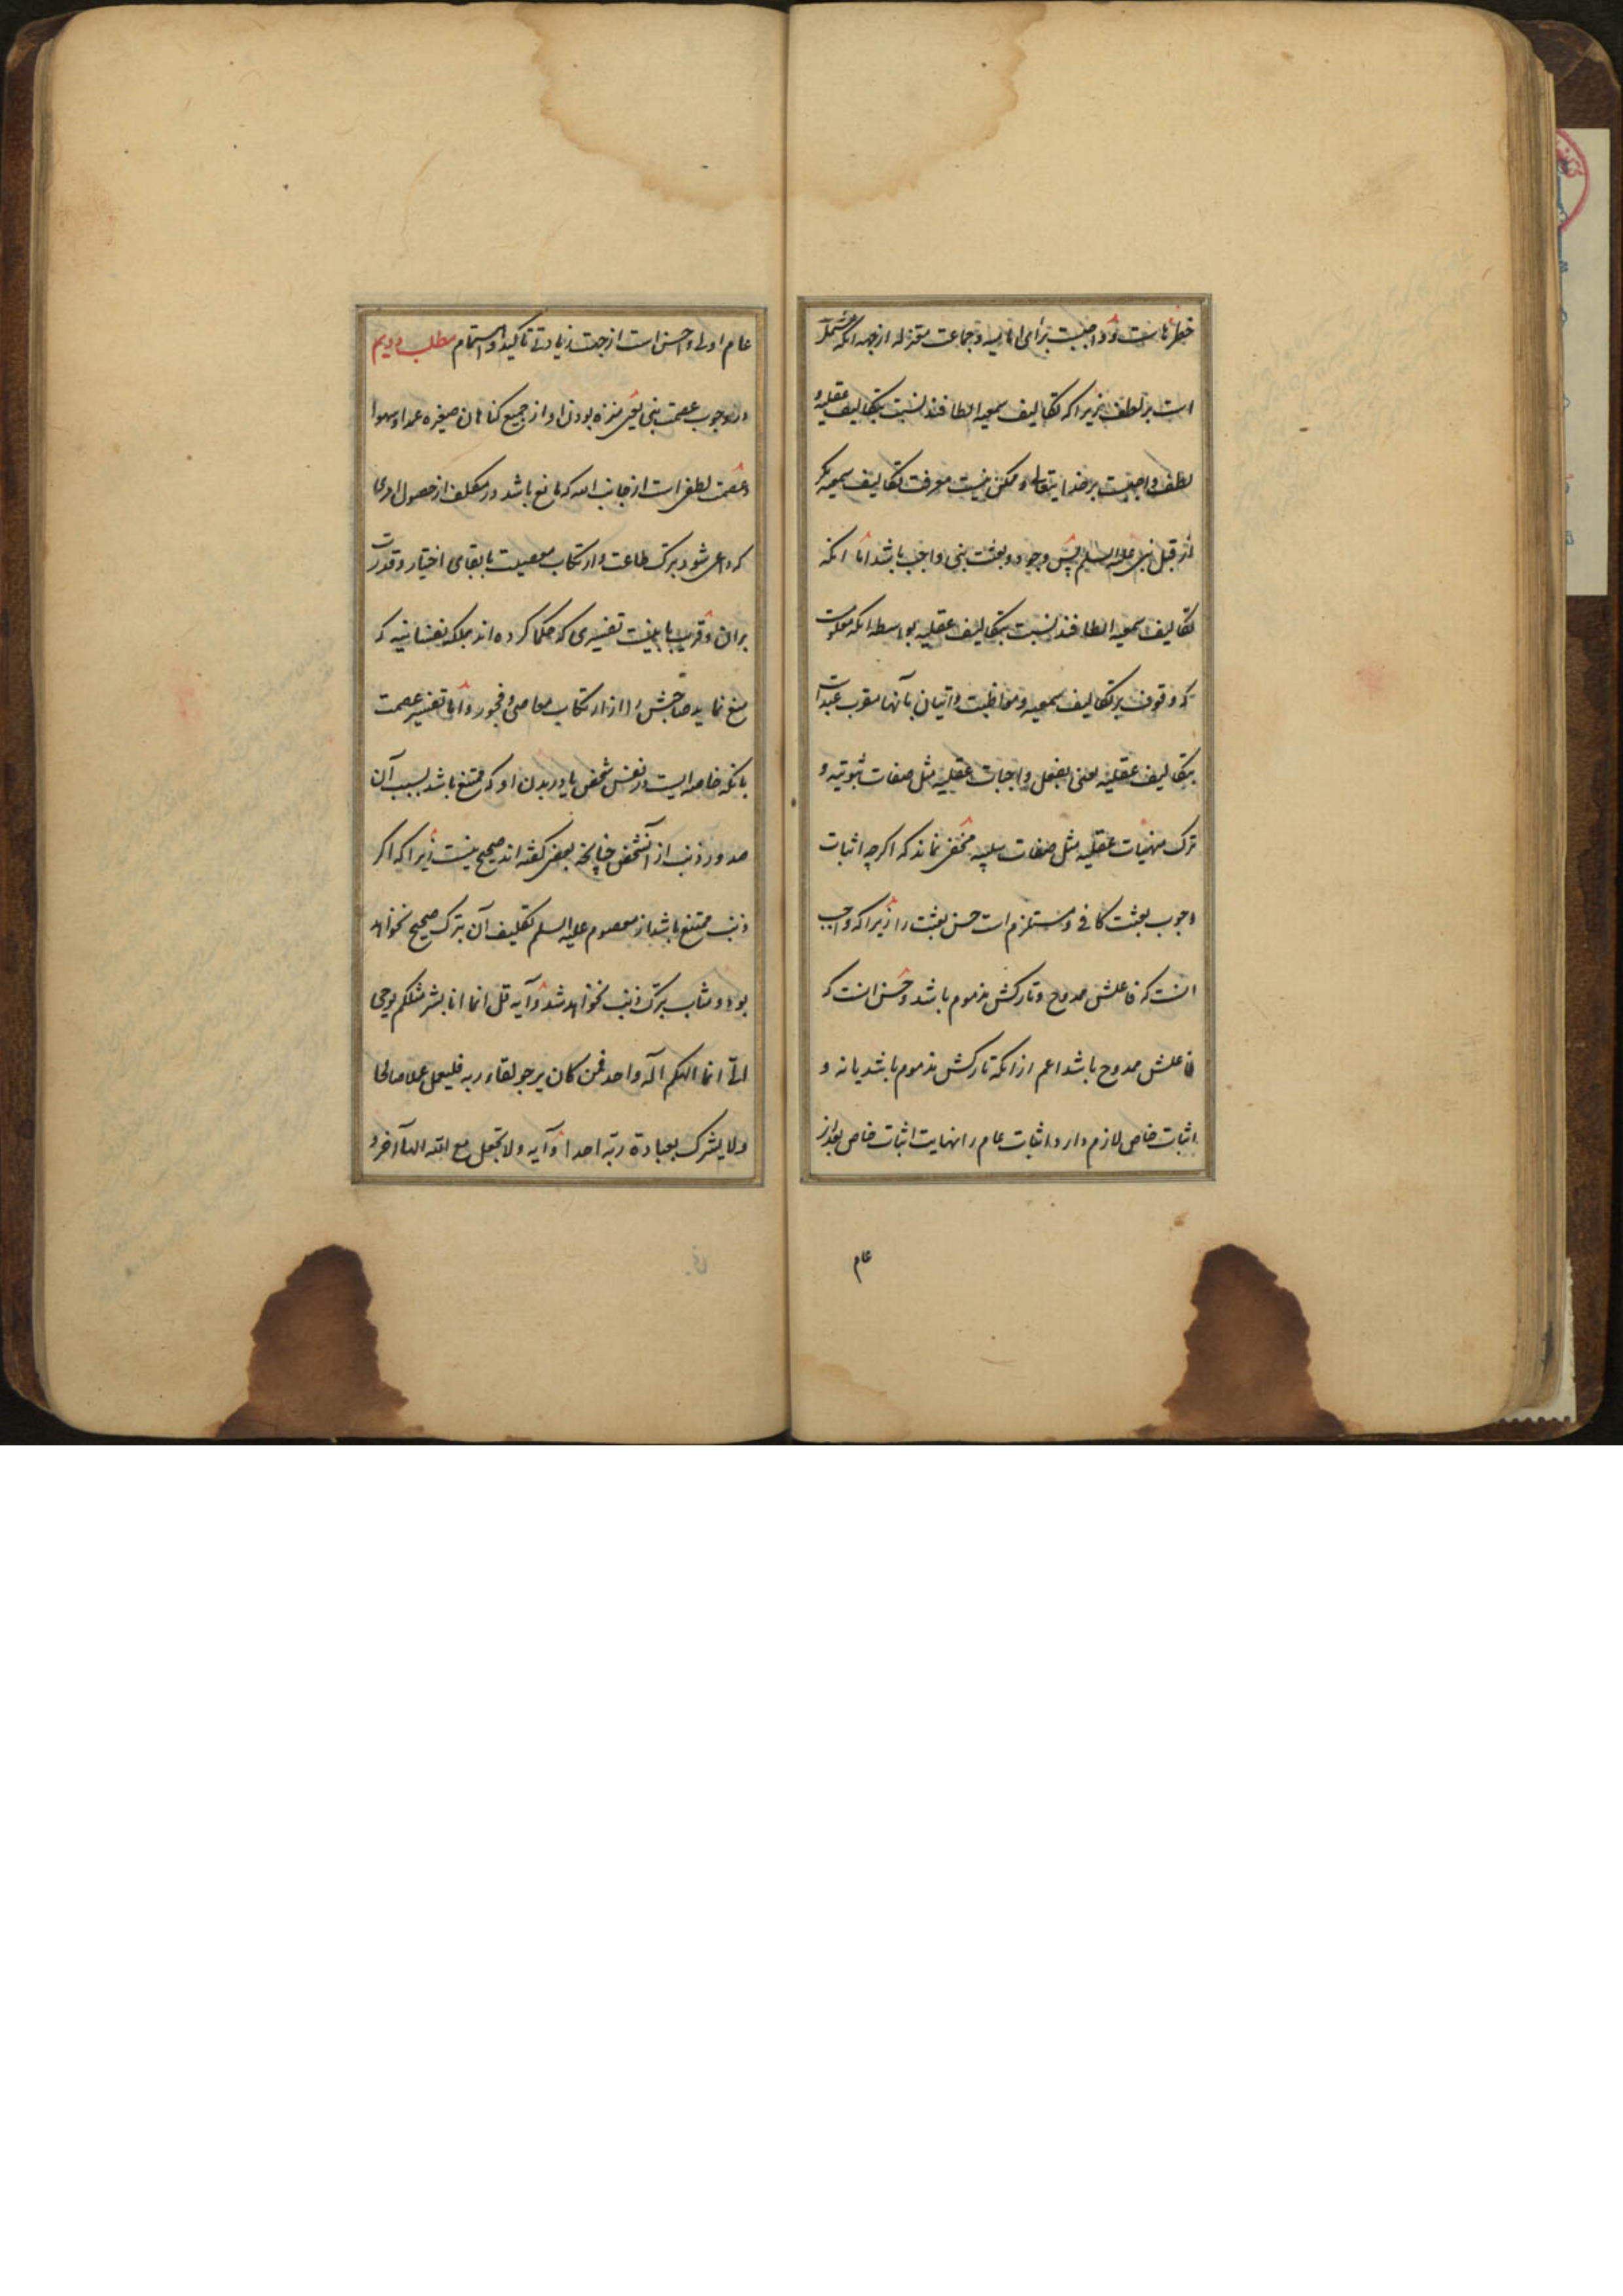 خطرناست و واجبست برای امامیه و جماعت معتزله از جهه انکه مشتمل
است بر لطف زیرا که تکالیف سمعیه الطافند نسبت بتکالیف عقلیه و
لطف واجبست بر خدا یتعالی و ممکن نیست معرفت تکالیف سمعیه مکر
از قبل نبی علیه السلم پس وجود و بعثت نبی واجب باشد اما انکه
تکالیف سمعیه الطافند نسبت بتکالیف عقلیه بواسطه انکه معلومست
که وقوف بر تکالیف سمعیه و مواظبت و اتیان بآنها مقرب عبد است
بتکالیف عقلیه یعنی بفعل واجبات عقلیه مثل صفات ثبوتیه و
ترک منهیات عقلیه مثل صفات سلبیه مخفی نماند که اکرچه اثبات
وجوب بعثت کافی و مستلزم است حسن بعثت را زیرا که واجب
انست که فاعلش ممدوح و تارکش مذموم باشد و حسن انست که
فاعلش ممدوح باشد اعم از انکه تارکش مذموم باشد یا نه و
اثبات خاص لازم دارد اثبات عام را نهایت اثبات خاص بعد از
عام
عام اولی و احسن است از جهت زیادتی تاکید و اهتمام مطلب دویم
در وجوب عصمت نبی یعنی منزه بودن او از جمیع کناهان صغیره عمدا و سهوا
و عصمت لطفی است از جانب الله که مانع باشد در مکلف از حصول امری
که داعی شود بترک طاعت و ارتکاب معصیت با بقای اختیار و قدرت
بران و قریب باینست تفسیری که حکما کرده اند بملکه نفسانیه که
منع نماید صاحبش را از ارتکاب معاصی و فجور و اما تفسیر عصمت
بانکه خاصه ایست در نفس شخص یا در بدن او که ممتنع باشد بسبب آن
صدور ذنب از آنشخص چنانچه بعضی کفته اند صحیح نیست زیرا که اکر
ذنب ممتنع باشد از معصوم علیه السلم تکلیف آن بترک صحیح نخواهد
بود و مثاب بترک ذنب نخواهد شد و آیه قل انما انا بشر مثلکم یوحی
الی انما الهکم اله واحد فمن کان یرجو لقاء ربه فلیعمل عملا صالحا
ولا یشرک بعبادة ربه احدا و آیه ولا تجعل مع الله الها آخر و